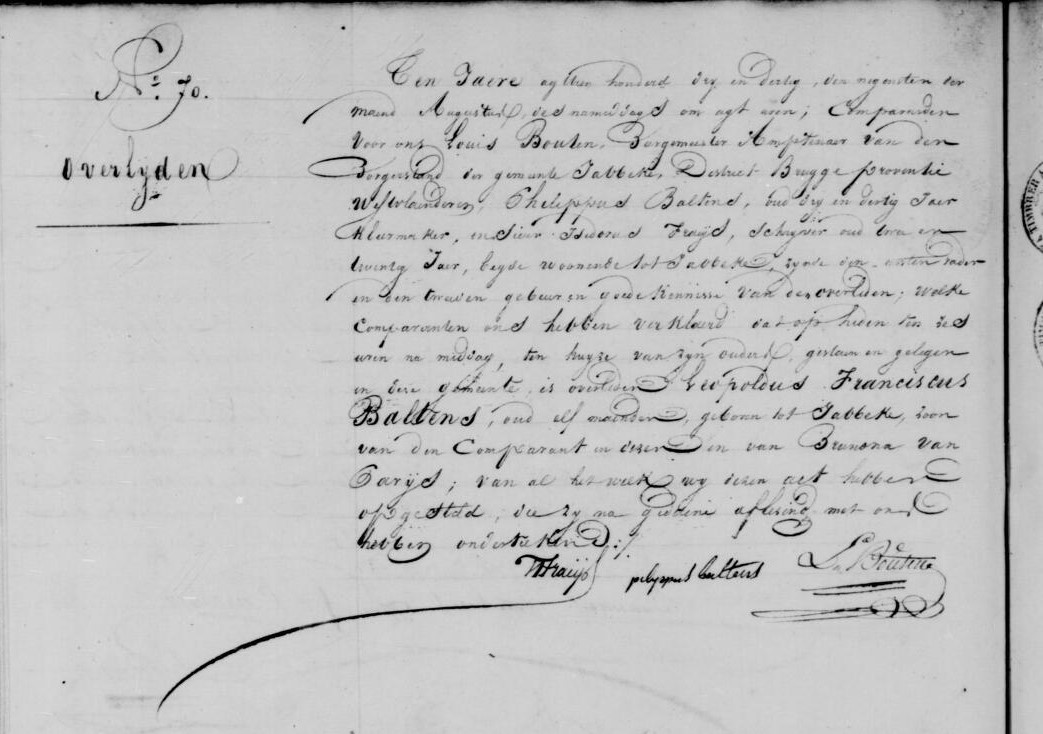 N.º 70.
Overlyden
Een Jaere agttien honderd dry en dertig, den negensten der
maend Augustus, des namiddags om agt uren; Compareerden
Voor ons Louis Bouten, Borgemeester Amptenaer van den
Borgerstand der gemeente Jabbeke, District Brugge proventie
Westvlaenderen, Philippus Baltens, oud dry en dertig Jaer
Kleermaker, en Sieur Isidorus Fraeijs, Schryver oud twee en
twentig Jaer, beyde woonende tot Jabbeke, zynde den eersten vader
en den tweeden gebeur en goede kennisse van den overleden; welke
Comparanten ons hebben verklaerd dat op heden ten zes
uren na middag, ten huyze van zyn ouders, gestaen en gelegen
in deze gemeente, is overleden Leopoldus Franciscus
Baltens, oud elf maenden, geboren tot Jabbeke, zoon
van den Comparant in dezen en van Brunona Van
Parijs; van al het welk wy dezen act hebben
opgesteld, die zy na gedaene aflesing met ons
hebben onderteekend ./.
Fraeijs pelyppus baltens L. Bouten
TIMBRE